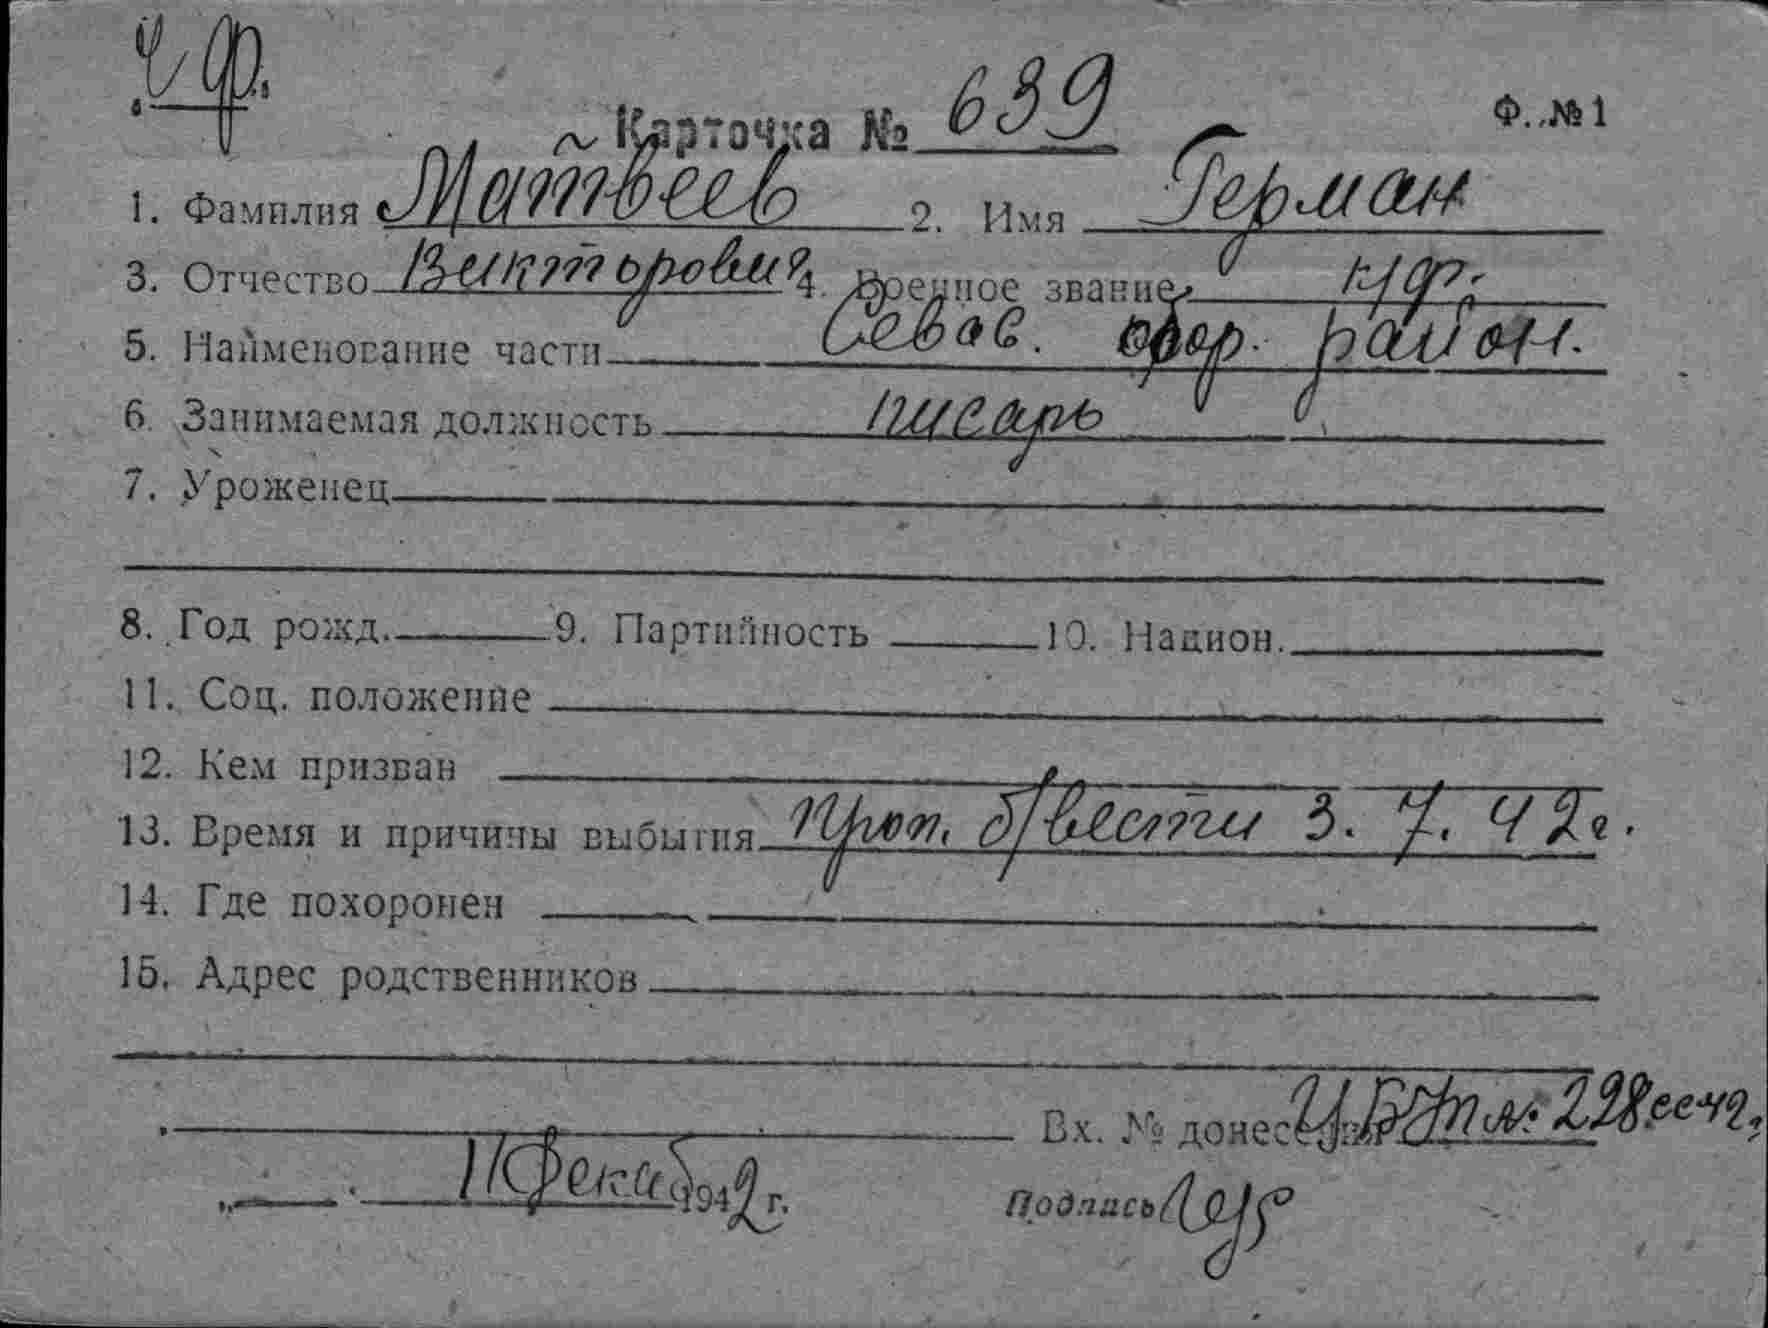 Карточка № 639 Ф. №1
1. Фамилия Матвеев 2. Имя Герман
3. Отчество Виктorович 4. Военное звание к/ф.
5. Наименование части Севас. обор. район.
6. Занимаемая должность писарь
7. Уроженец
8. Год рожд. 9. Партийность 10. Национ.
11. Соц. положение
12. Кем призван
13. Время и причины выбытия проп. б/вести 3. 7. 42 г.
14. Где похоронен
15. Адрес родственников
Вх. № донесения 228
1942 г. Подпись